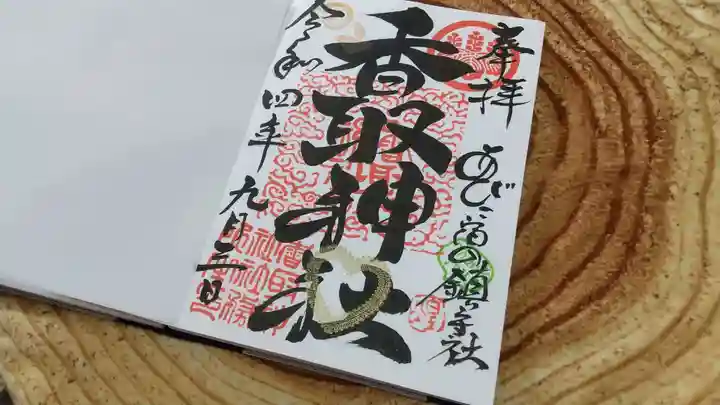 奉拝
あびこ宿の鎮守社
香取神社
令和四年
九月三日